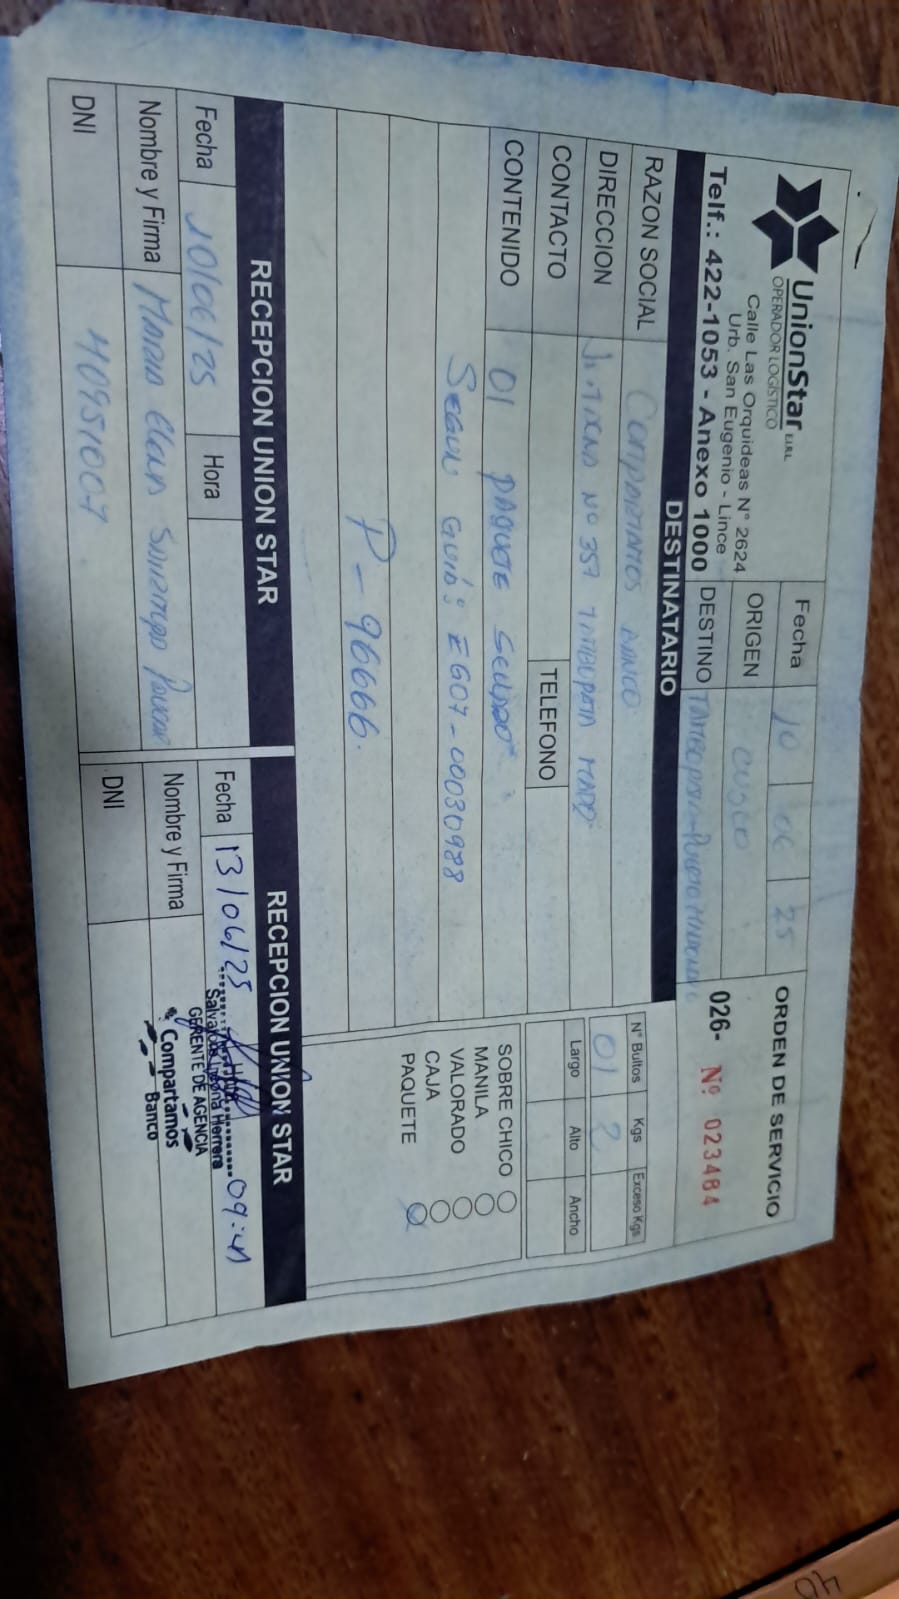 UnionStar E.I.R.L.
OPERADOR LOGÍSTICO
Calle Las Orquideas N° 2624
Urb. San Eugenio - Lince
Telf.: 422-1053 - Anexo 1000
Fecha 10 06 25
ORIGEN CUSCO
DESTINO
ORDEN DE SERVICIO
026- Nº 023484
DESTINATARIO
RAZON SOCIAL Compartamos BANCO
DIRECCION N° 357 TAMBOPATA
CONTACTO
TELEFONO
CONTENIDO 01 PAQUETE SELLADO
SEGUN GUIA: EG07-00030988
P-96666.
N° Bultos Kgs Exceso Kgs
01 2
Largo Alto Ancho
SOBRE CHICO
MANILA
VALORADO
CAJA
PAQUETE
RECEPCION UNION STAR
Fecha 10/06/25 Hora
Nombre y Firma MARIA
DNI 40951007
RECEPCION UNION STAR
Fecha 13/06/25 09:41
Herrera
GERENTE DE AGENCIA
Compartamos
Banco
Nombre y Firma
DNI